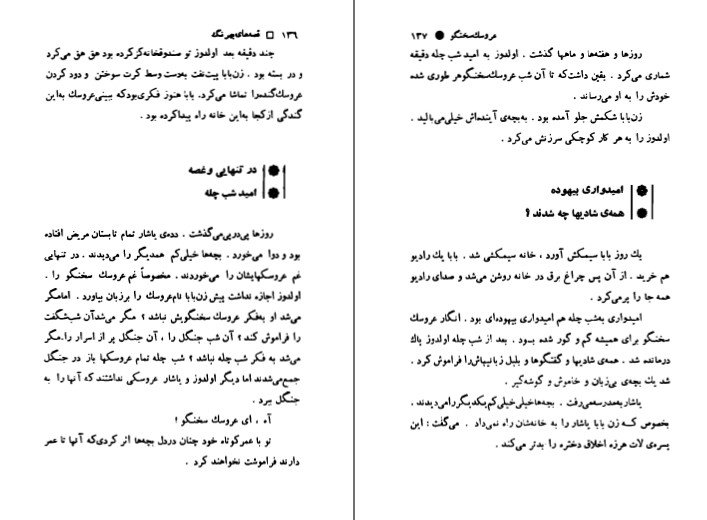 ۱۳۶ □ قصه‌های بهرنگ
چند دقیقه بعد اولدوز تو صندوقخانه کز کرده بود هق هق می‌کرد
و در بسته بود . زن‌بابا پیت نفت به‌دست وسط کرت سوختن و دود کردن
عروسك گنده را تماشا می‌کرد. بابا هنوز فکری بود که ببینی عروسك به‌این
گندگی از کجا به‌این خانه راه پیدا کرده بود .
● در تنهایی و غصه
● امید شب چله
روزها پی‌درپی می‌گذشت . دده‌ی یاشار تمام تابستان مریض افتاده
بود و دوا می‌خورد . بچه‌ها خیلی کم همدیگر را می‌دیدند . در تنهایی
غم عروسکهایشان را می‌خوردند . مخصوصاً غم عروسك سخنگو را .
اولدوز اجازه نداشت پیش زن‌بابا نام عروسك را بر زبان بیاورد . اما مگر
می‌شد او به‌فکر عروسك سخنگویش نباشد ؟ مگر می‌شد آن شب شگفت
را فراموش کند ؟ آن شب جنگل را ، آن جنگل پر از اسرار را. مگر
می‌شد به فکر شب چله نباشد ؟ شب چله تمام عروسکها باز در جنگل
جمع می‌شدند اما دیگر اولدوز و یاشار عروسکی نداشتند که آنها را به
جنگل ببرد .
آه ، ای عروسك سخنگو !
تو با عمر کوتاه خود چنان در دل بچه‌ها اثر کردی که آنها تا عمر
دارند فراموشت نخواهند کرد .
عروسك سخنگو ● ۱۳۷
روزها و هفته‌ها و ماهها گذشت . اولدوز به امید شب چله دقیقه
شماری می‌کرد . یقین داشت که تا آن شب عروسك سخنگو هر طوری شده
خودش را به او می‌رساند .
زن‌بابا شکمش جلو آمده بود . به‌بچه‌ی آینده‌اش خیلی می‌بالید .
اولدوز را به هر کار کوچکی سرزنش می‌کرد .
● امیدواری بیهوده
● همه‌ی شادیها چه شدند ؟
يك روز بابا سیمکش آورد ، خانه سیمکشی شد . بابا يك رادیو
هم خرید . از آن پس چراغ برق در خانه روشن می‌شد و صدای رادیو
همه جا را پر می‌کرد .
امیدواری به‌شب چله هم امیدواری بیهوده‌ای بود . انگار عروسك
سخنگو برای همیشه گم و گور شده بود . بعد از شب چله اولدوز پاك
درمانده شد . همه‌ی شادیها و گفتگوها و بلبل زبانیهاش را فراموش کرد .
شد يك بچه‌ی بی‌زبان و خاموش و گوشه‌گیر .
یاشار به مدرسه می‌رفت . بچه‌ها خیلی خیلی کم یکدیگر را می‌دیدند ،
بخصوص که زن بابا یاشار را به خانه‌شان راه نمی‌داد . می‌گفت : این
پسره‌ی لات هرزه اخلاق دختره را بدتر می‌کند .